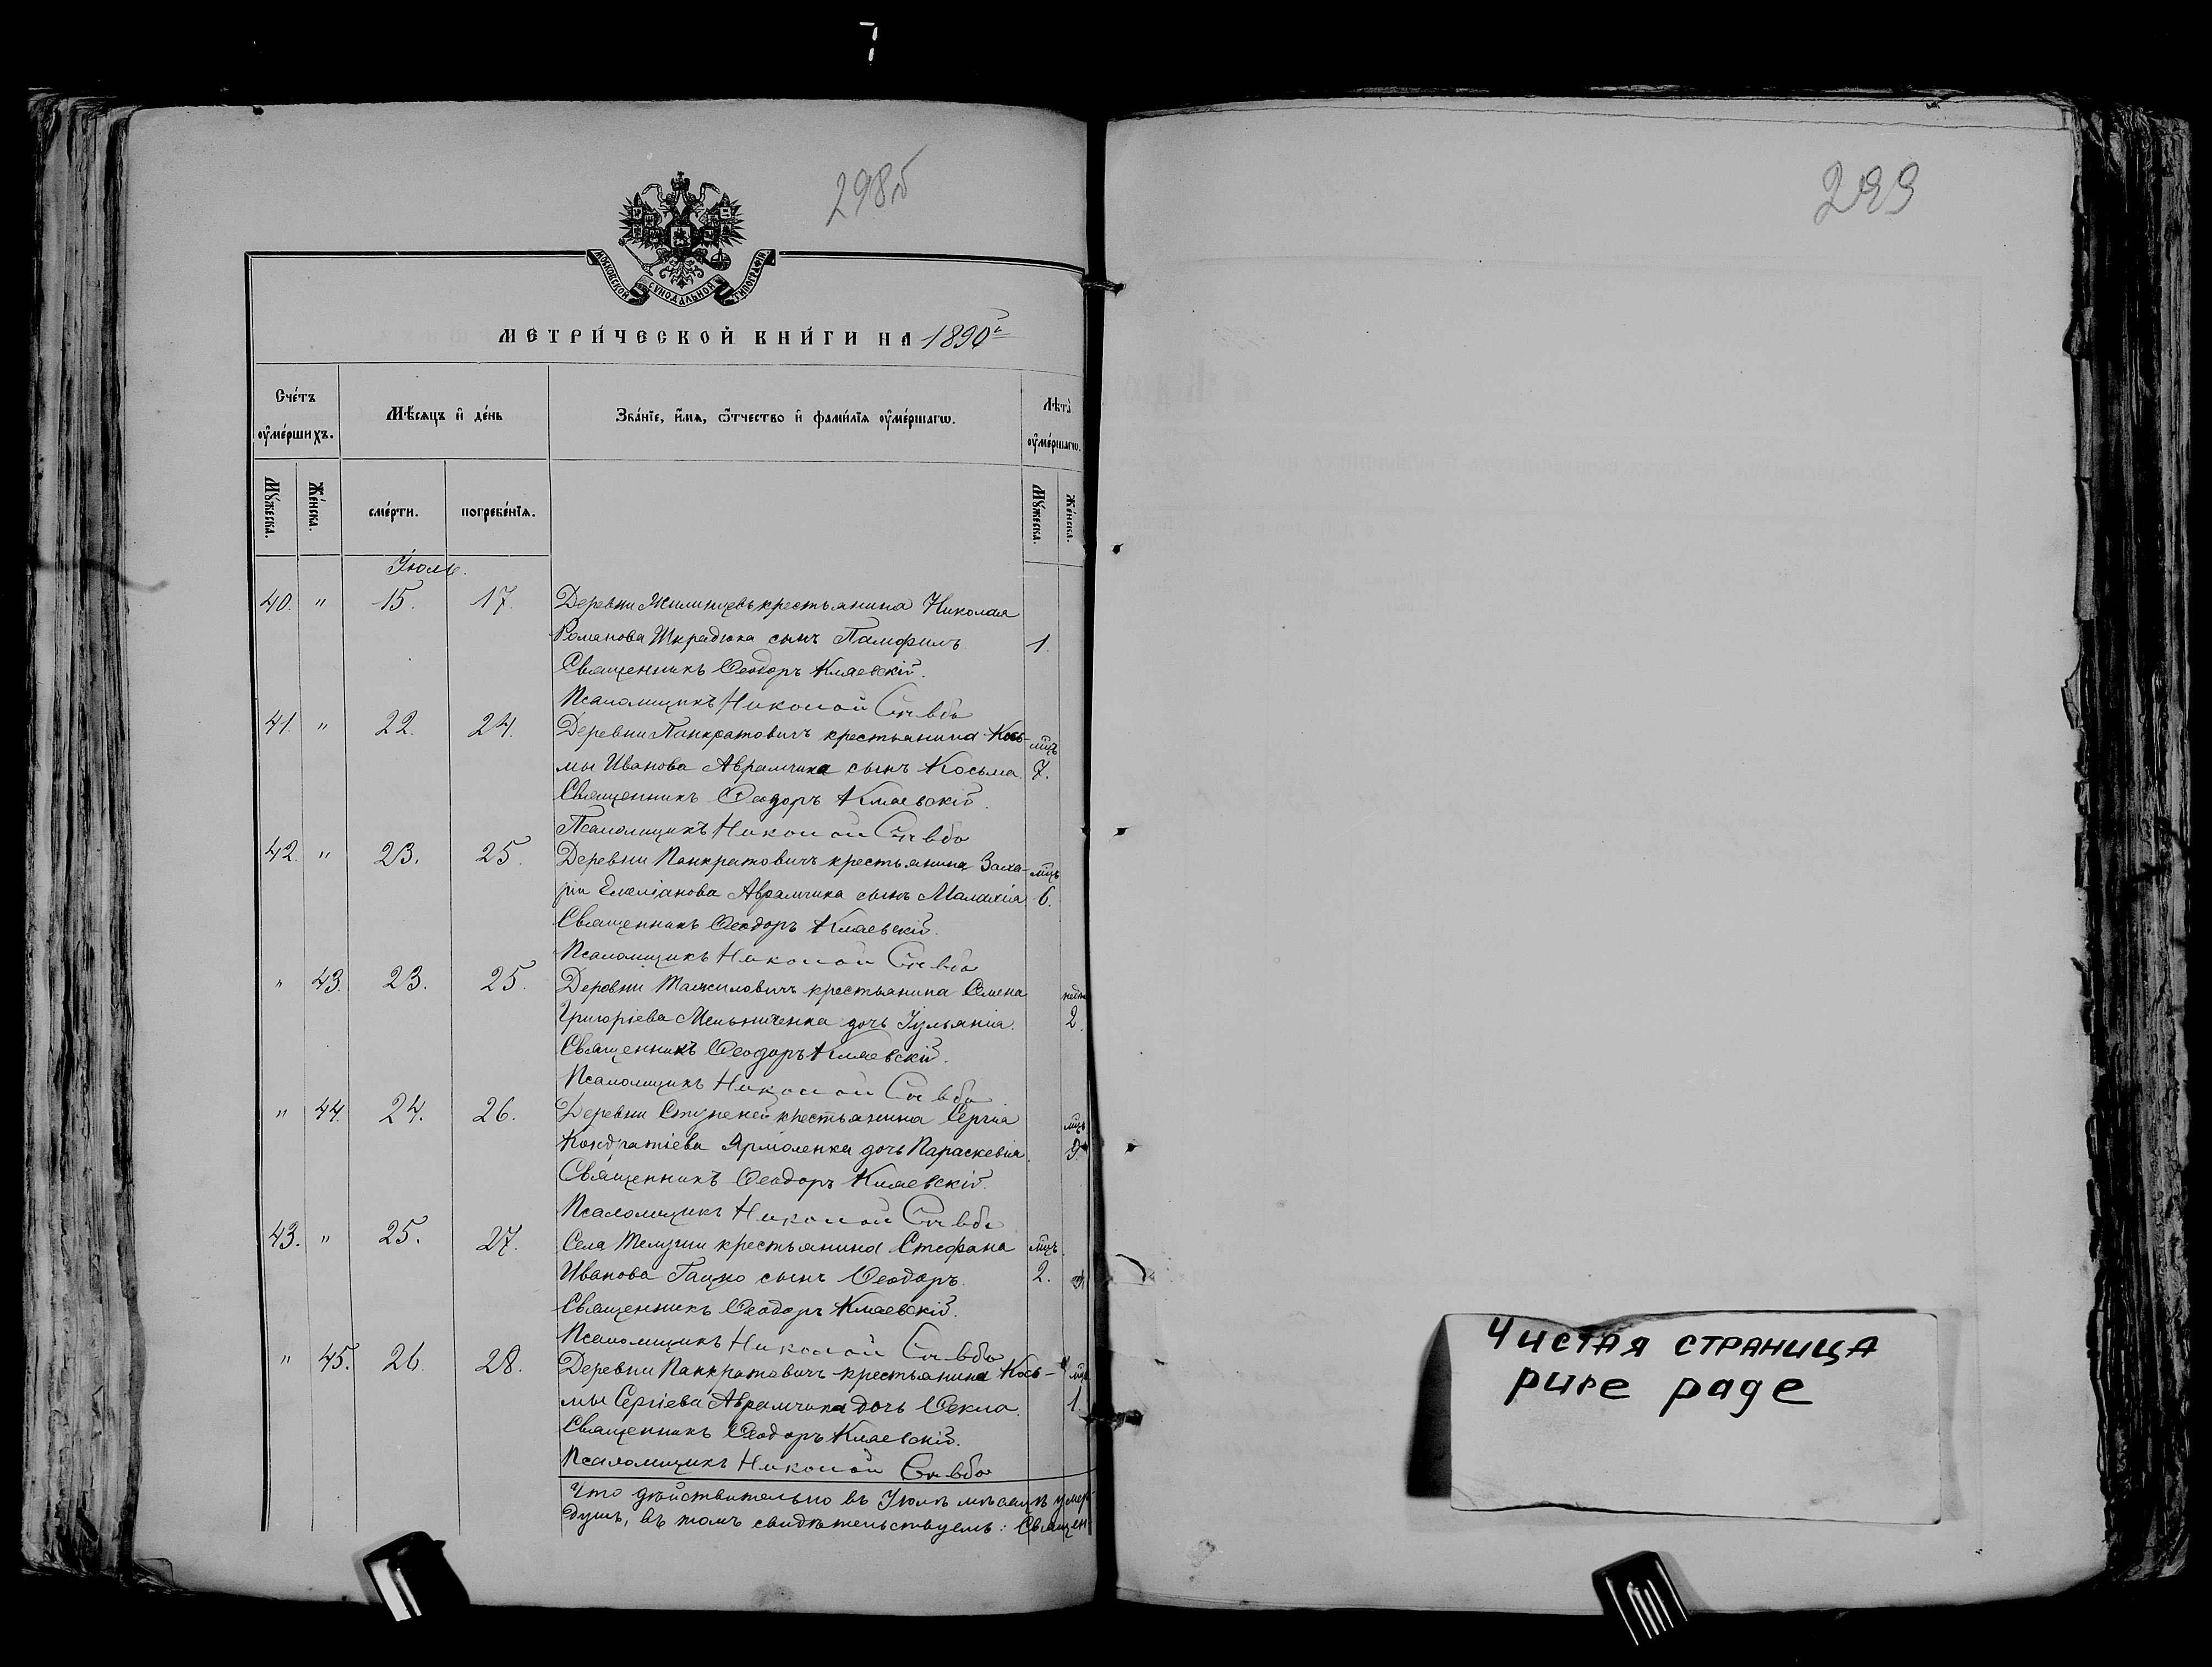 7
298об
299
МОСКОВСКОЙ СѴНОДАЛЬНОЙ ТИПОГРАФІИ
МЕТРИ́ЧЕСКОЙ КНИ́ГИ НА 1890й
Сче́тъ оу҆ме́ршихъ.
Мѣ́сяцъ и҆ де́нь
Зва́нїе, и҆́мѧ, ѻ҆́тчество и҆ фами́лїѧ оу҆ме́ршагѡ.
Лѣ́та оу҆ме́ршагѡ.
Мꙋ́жеска.
Же́нска.
сме́рти.
погребе́нїѧ.
Мꙋ́жеска.
Же́нска.
Іюль.
40. " 15. 17. Деревни Жилинцевъ крестьянина Николая
Романова Шкрадюка сынъ Памфилъ 1.
Священникъ Ѳеодоръ Кляевскій.
Псаломщикъ Николай
41. " 22. 24. Деревни Панкратовичъ крестьянина Кось- мцъ
мы Иванова Аврамчика сынъ Косьма. 7.
Священникъ Ѳеодоръ Кляевскій.
Псаломщикъ Николай
42. " 23. 25. Деревни Панкратовичъ крестьянина Заха- мцъ
ріи Емеліанова Аврамчика сынъ Малахія 6.
Священникъ Ѳеодоръ Кляевскій.
Псаломщикъ Николай
" 43. 23. 25. Деревни крестьянина Семена
Григоріева Мельниченка дочь Іульянія. 2.
Священникъ Ѳеодоръ Кляевскій.
Псаломщикъ Николай
" 44. 24. 26. Деревни Ступеней крестьянина Сергія мцъ
Кондратіева Ярмоленка дочь Параскевія.
Священникъ Ѳеодоръ Кляевскій.
Псаломщикъ Николай
43. " 25. 27. Села Телуши крестьянина Стефана мцъ.
Иванова Гацко сынъ Ѳеодоръ. 2.
Священникъ Ѳеодоръ Кляевскій.
Псаломщикъ Николай
" 45. 26. 28. Деревни Панкратовичъ крестьянина Кось-
мы Сергіева Аврамчика дочь Ѳекла. 1.
Священникъ Ѳеодоръ Кляевскій.
Псаломщикъ Николай
Что дѣйствительно въ Іюлѣ мѣсяцѣ умер
душъ, въ томъ свидѣтельствуемъ: Священ
Чистая страница
pure page